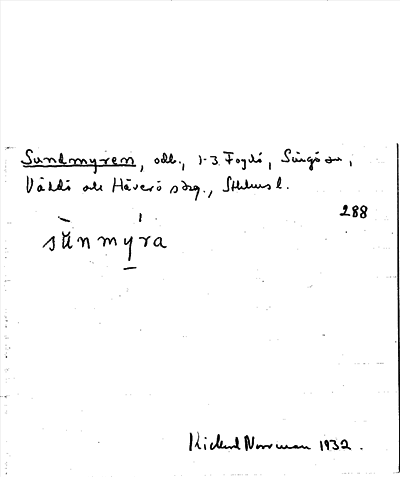 Sundmyren, odl., 1-3 Fogdö, Singö sn,
Väddö och Häverö skg., Sthlms l.
288
sùnmýra
Rickard Norrman 1932.